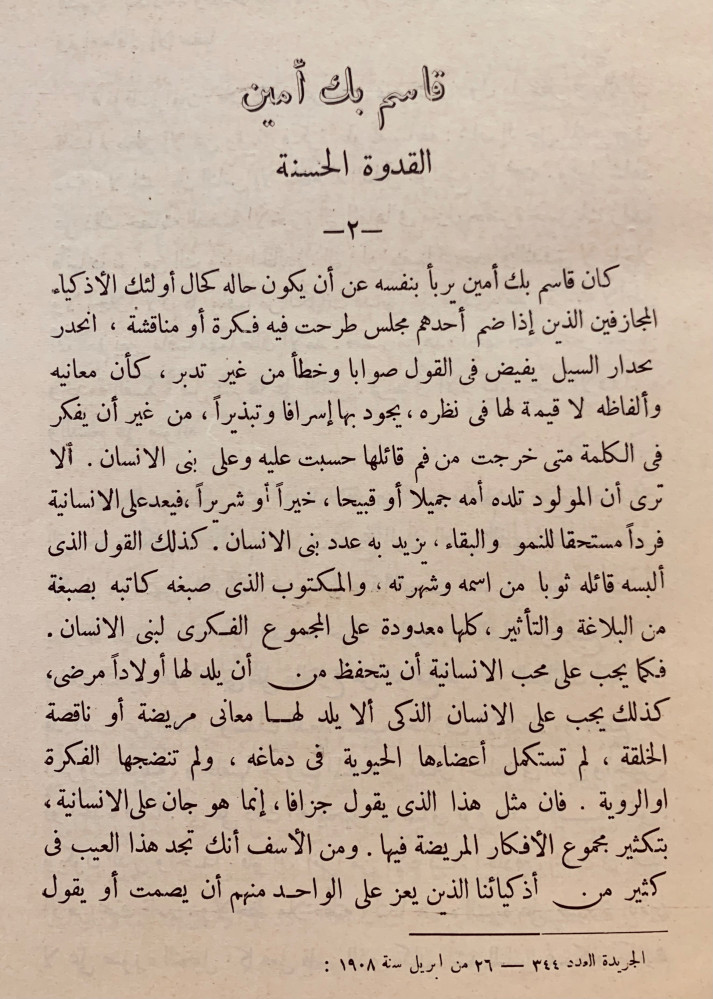 قاسم بك أمين
القدوة الحسنة
—٢—
كان قاسم بك أمين يربأ بنفسه عن أن يكون حاله كحال أولئك الأذكياء
المجازفين الذين إذا ضم أحدهم مجلس طرحت فيه فكرة أو مناقشة ، انحدر
بحدار السيل يفيض فى القول صوابا وخطأ من غير تدبر ، كأن معانيه
وألفاظه لا قيمة لها فى نظره ، يجود بها إسرافا وتبذيراً ، من غير أن يفكر
فى الكلمة متى خرجت من فم قائلها حسبت عليه وعلى بنى الانسان . ألا
ترى أن المولود تلده أمه جميلا أو قبيحا ، خيراً أو شريراً ، فيعد على الانسانية
فرداً مستحقا للنمو والبقاء ، يزيد به عدد بنى الانسان . كذلك القول الذى
ألبسه قائله ثوبا من اسمه وشهرته ، والمكتوب الذى صبغه كاتبه بصبغة
من البلاغة والتأثير ، كلها معدودة على المجموع الفكرى لبنى الانسان .
فكما يجب على محب الانسانية أن يتحفظ من أن يلد لها أولاداً مرضى ،
كذلك يجب على الانسان الذكى ألا يلد لهـا معانى مريضة أو ناقصة
الخلقة ، لم تستكمل أعضاءها الحيوية فى دماغه ، ولم تنضجها الفكرة
او الروية . فان مثل هذا الذى يقول جزافا ، إنما هو جان على الانسانية ،
بتكثير مجموع الأفكار المريضة فيها . ومن الأسف أنك تجد هذا العيب فى
كثير من أذكيائنا الذين يعز على الواحـد منهم أن يصمت أو يقول
الجريدة العدد ٣٤٤ — ٢٦ من ابريل سنة ١٩٠٨ :